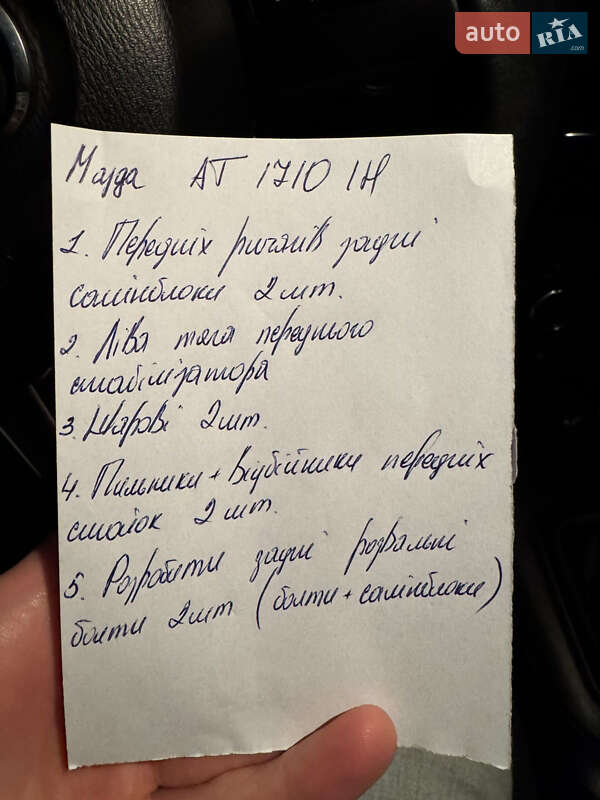 auto RIA .com
Мазда АТ 1710 ІН
1. Передніх ричагів задні
салінблоки 2 шт.
2. Ліва тяга переднього
стабілізатора
3. Шарові 2 шт.
4. Пильники + відбійники передніх
стоїок 2 шт.
5. Розробити задні розвальні
болти 2 шт (болти + салінблоки)